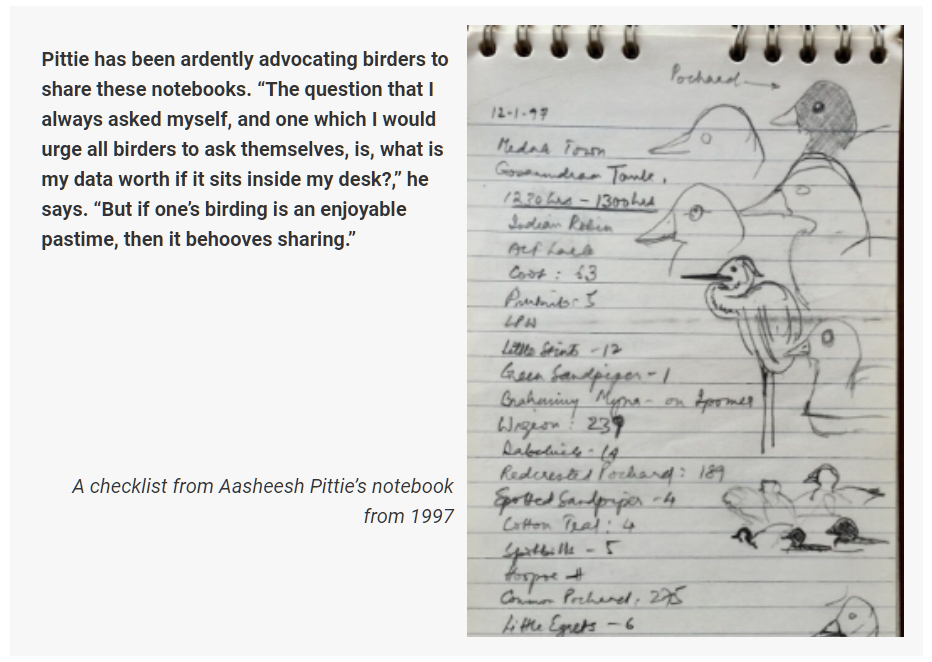 Pittie has been ardently advocating birders to
share these notebooks. “The question that I
always asked myself, and one which I would
urge all birders to ask themselves, is, what is
my data worth if it sits inside my desk?,” he
says. “But if one’s birding is an enjoyable
pastime, then it behooves sharing.”
A checklist from Aasheesh Pittie’s notebook
from 1997
Pochard
12-1-97
Medak Town
Tank,
1230hrs - 1300hrs
Indian Robin
Coot : 63
5
LPW
Little Stints - 12
Green Sandpiper - 1
Brahminy Myna - on Ipomea
Wigeon : 239
Dabchicks - 14
Redcrested Pochard : 189
Spotted Sandpiper - 4
Cotton Teal : 4
Spotbills - 5
Hoopoe
Common Pochard : 275
Little Egrets - 6